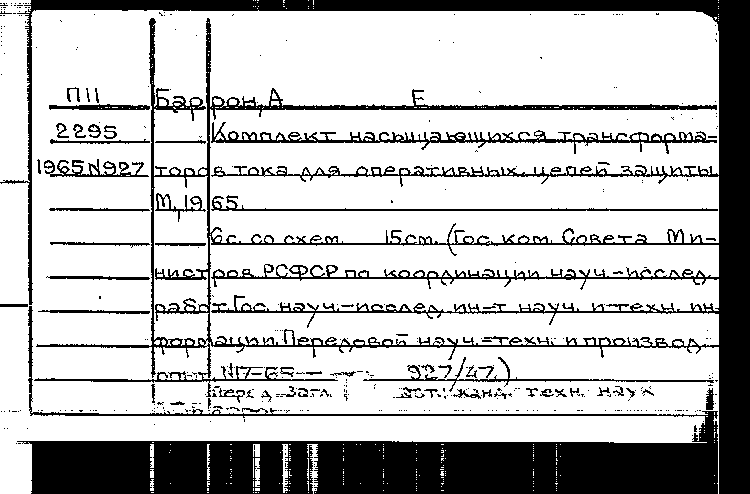 П11 Баррон, А Е
2295 Комплект насыщающихся трансформа-
1965 N927 торов тока для оперативных цепей защиты
М, 1965.
6с. со схем. 15см. (Гос. ком. Совета Ми-
нистров РСФСР по координации науч.-исслед.
работ. Гос. науч.-исслед. ин-т науч. и техн. ин
формации. Передовой науч.-техн. и производ.
опыт. N17-65- 927/47.)
Перед загл. авт.: канд. техн. наук